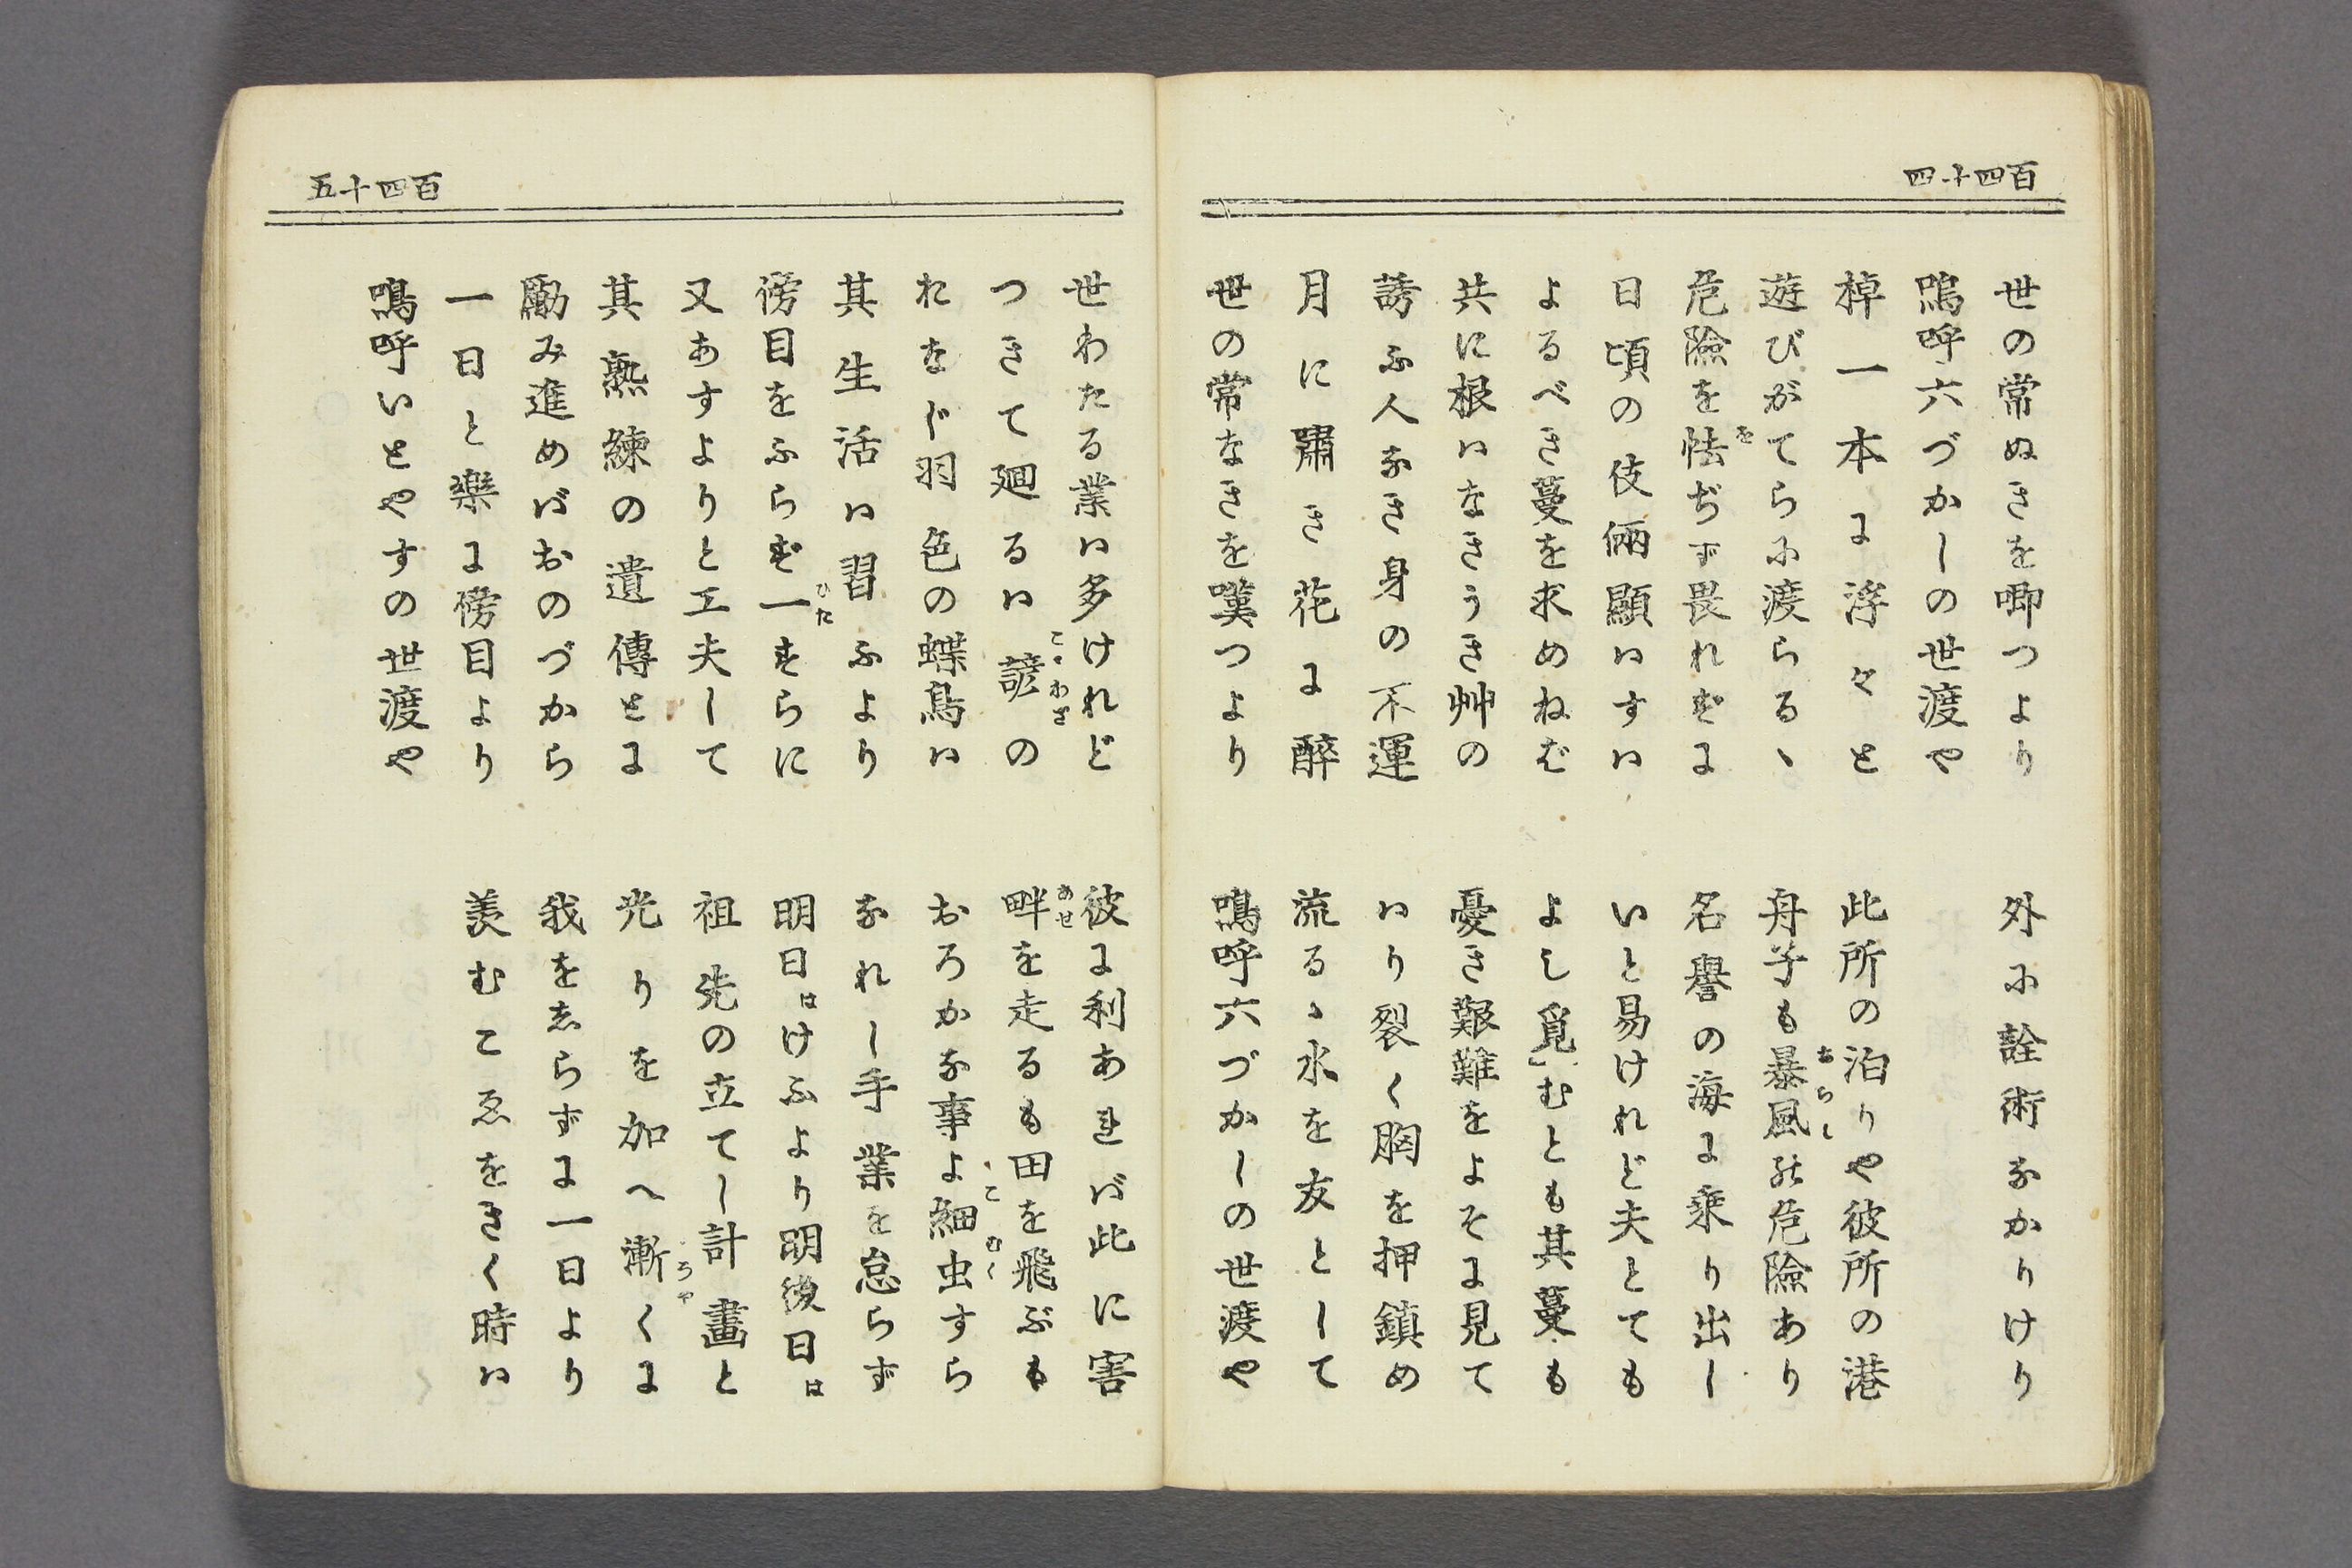 百四十四
世の常ぬきを喞つより
外に詮術なかりけり
嗚呼六づかしの世渡や
棹一本に浮々と
此所の泊りや彼所の港
遊びがてらに渡らるヽ
舟子も暴風の危險あり
あらし
危險を怯ぢず畏れずに
を
名譽の海に乘り出し
日頃の伎倆顯はすは
いと易けれど夫とても
よるべき蔓を求めねば
よし覓むとも其蔓も
共に根はなきうき艸の
憂き艱難をよそに見て
誘ふ人なき身の不運
はり裂く胸を押鎮め
月に嘯き花に醉
流るヽ水を友として
世の常なきを嘆つより
嗚呼六づかしの世渡や
百四十五
世わたる業は多けれど
彼に利あれば此に害
つきて廻るは諺の
ことわざ
畔を走るも田を飛ぶも
あせ
れなじ羽色の蝶鳥は
おろかな事よ細虫すら
こむく
其生活は習ふより
なれし手業を怠らず
傍目をふらず一すらに
ひた
明日はけふより明後日は
又あすよりと工夫して
祖先の立てし計畫と
其熟練の遺傳とに
光りを加へ漸くに
うや
勵み進めばおのづから
我をしらずに一日より
一日と樂に傍目より
羨むこゑをきく時は
嗚呼いとやすの世渡や